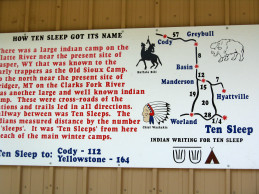 HOW TEN SLEEP GOT ITS NAME
There was a large indian camp on the
Platte River near the present site of
Casper, WY that was known to the
early trappers as the Old Sioux Camp.
To the north near the present site of
Bridger, MT on the Clarks Fork River
was another large and well known indian
camp. These were cross-roads of the
nations and trails led in all directions.
Halfway between was Ten Sleep. The
indians measured distance by the number
'sleeps'. It was 'Ten Sleeps' from here
each of the main winter camps.
Ten Sleep to: Cody - 112
Yellowstone - 164
Cody
57
Greybull
Buffalo Bill
8
Basin
Manderson
12
7
15
Hyattville
19
20
Chief Washakie
Worland
28
1/4
Ten Sleep
INDIAN WRITING FOR TEN SLEEP